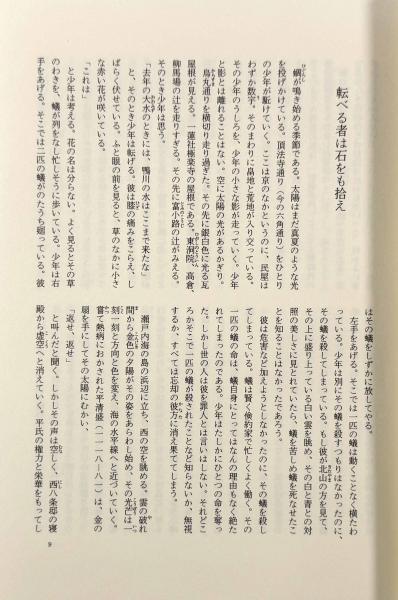 転べる者は石をも拾え
蜩が鳴き始める季節である。太陽はまだ真夏のような光
を投げかけている。頂法寺通り（今の六角通り）をひとり
の少年が駈けていく。ここは京のなかというのに、民屋は
わずか数字。そのまわりに畠地と荒地が入り交っている。
その少年のうしろを、少年の小さな影が走っていく。少年
と影とは離れることはない。空に太陽の光があるかぎり。
烏丸通りを横切り走り過ぎた。その先に銀白色に光る瓦
屋根が見える。一蓮社極楽寺の屋根である。東洞院、高倉、
柳馬場の辻を走りすぎる。その先に富小路の辻がみえる。
そのとき少年は思う。
「去年の大水のときには、鴨川の水はここまで来たな」
と、そのとき少年は転げる。彼は膝の痛みをこらえ、し
ばらく伏せている。ふと眼の前を見ると、草のなかに小さ
な赤い花が咲いている。
「これは」
と少年は考える。花の名は分らない。よく見るとその草
のわきを、蟻が列をなし忙しそうに歩いている。少年は右
手をあげる。そこでは二匹の蟻がのたうち廻っている。彼
はその蟻をしずかに放してやる。
左手をあげる。そこでは一匹の蟻は動くことなく横たわ
っている。少年は別にその蟻を殺すつもりはなかったのに、
その蟻を殺してしまっている。もし彼が北山の方を見て、
その上に盛り上っている白い雲を眺め、その白と青との対
照の美しさに見とれていたら、蟻を苦しめ蟻を死なせたこ
とを知ることはなかったであろう。
彼は危害など加えようとしなかったのに、その蟻を殺し
てしまっている。蟻は賢く倹約家で忙しくよく働く。その
一匹の蟻の命は、蟻自身にとってはなんの理由もなく絶た
れてしまったのである。少年はたしかにひとつの命を奪っ
た。しかし世の人は彼を罪人とは言いはしない。それどこ
ろかそこで一匹の蟻が殺されたことなど知らないか、無視
するか、すべては忘却の彼方に消え果ててしまう。
瀬戸内海の島の浜辺に立ち、西の空を眺める。雲の破れ
間から金色の夕陽がその姿をあらわし始め、その光芒は一
刻一刻と方向と色を変え、海の水平線へと近づいていく。
嘗て熱病におかされた平清盛（一一一八—八一）は、金の
扇を手にしてその太陽にむかい、
「返せ、返せ」
と叫んだと聞く。しかしその声は空しく、西八条邸の寝
殿から虚空へと消えていく。平氏の権力と栄華をもってし
9